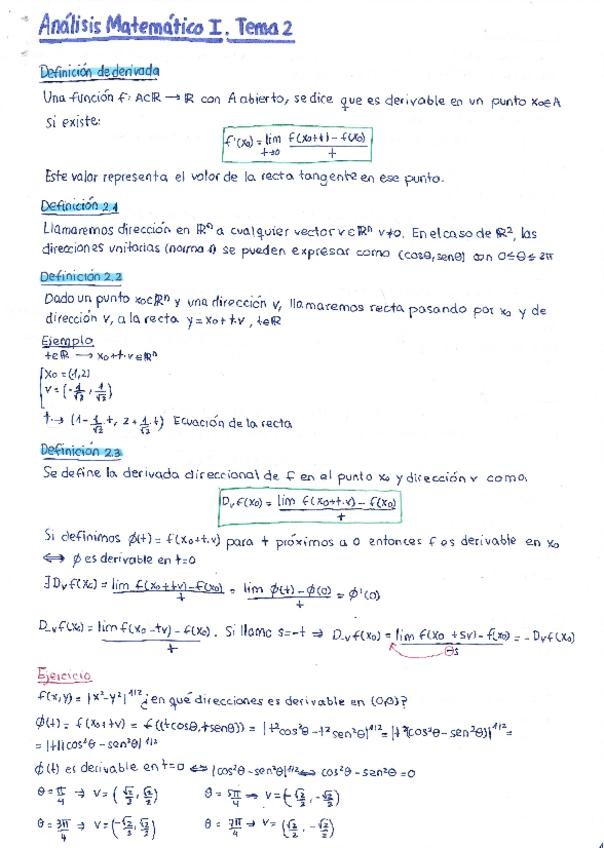 Análisis Matemático I. Tema 2
Definición de derivada
Una función f: A⊂ℝ → ℝ con A abierto, se dice que es derivable en un punto x₀∈A
si existe:
f'(x₀) = lim f(x₀+t) - f(x₀)
t→0 t
Este valor representa el valor de la recta tangente en ese punto.
Definición 2.1
Llamaremos dirección en ℝⁿ a cualquier vector v∈ℝⁿ v≠0. En el caso de ℝ², las
direcciones unitarias (norma 1) se pueden expresar como (cosθ, senθ) con 0≤θ≤2π
Definición 2.2
Dado un punto x₀∈ℝⁿ y una dirección v, llamaremos recta pasando por x₀ y de
dirección v, a la recta y = x₀ + t·v, t∈ℝ
Ejemplo
t∈ℝ → x₀+t·v∈ℝⁿ
x₀ = (1,2)
v = (-1/√2, 1/√2)
t → (1 - 1/√2 t, 2 + 1/√2 t) Ecuación de la recta
Definición 2.3
Se define la derivada direccional de f en el punto x₀ y dirección v como.
Dᵥf(x₀) = lim f(x₀+t·v) - f(x₀)
t
Si definimos ϕ(t) = f(x₀+t·v) para t próximos a 0 entonces f es derivable en x₀
⟺ ϕ es derivable en t=0
∃Dᵥf(x₀) = lim f(x₀+tv) - f(x₀) / t = lim ϕ(t) - ϕ(0) / t = ϕ'(0)
D₋ᵥf(x₀) = lim f(x₀ - tv) - f(x₀) / t. Si llamo s=-t ⇒ D₋ᵥf(x₀) = lim f(x₀ + sv) - f(x₀) / ⊖s = -Dᵥf(x₀)
Ejercicio
f(x,y) = |x²-y²|^1/2 ¿en qué direcciones es derivable en (0,0)?
ϕ(t) = f(x₀+tv) = f((tcosθ, tsenθ)) = |t²cos²θ - t²sen²θ|^1/2 = |t²(cos²θ - sen²θ)|^1/2 =
= |t||cos²θ - sen²θ|^1/2
ϕ(t) es derivable en t=0 ⟺ |cos²θ - sen²θ|^1/2 ⟺ cos²θ - sen²θ = 0
θ = π/4 → v = (√2/2, √2/2) θ = 5π/4 → v = (-√2/2, -√2/2)
θ = 3π/4 → v = (-√2/2, √2/2) θ = 7π/4 → v = (√2/2, -√2/2)